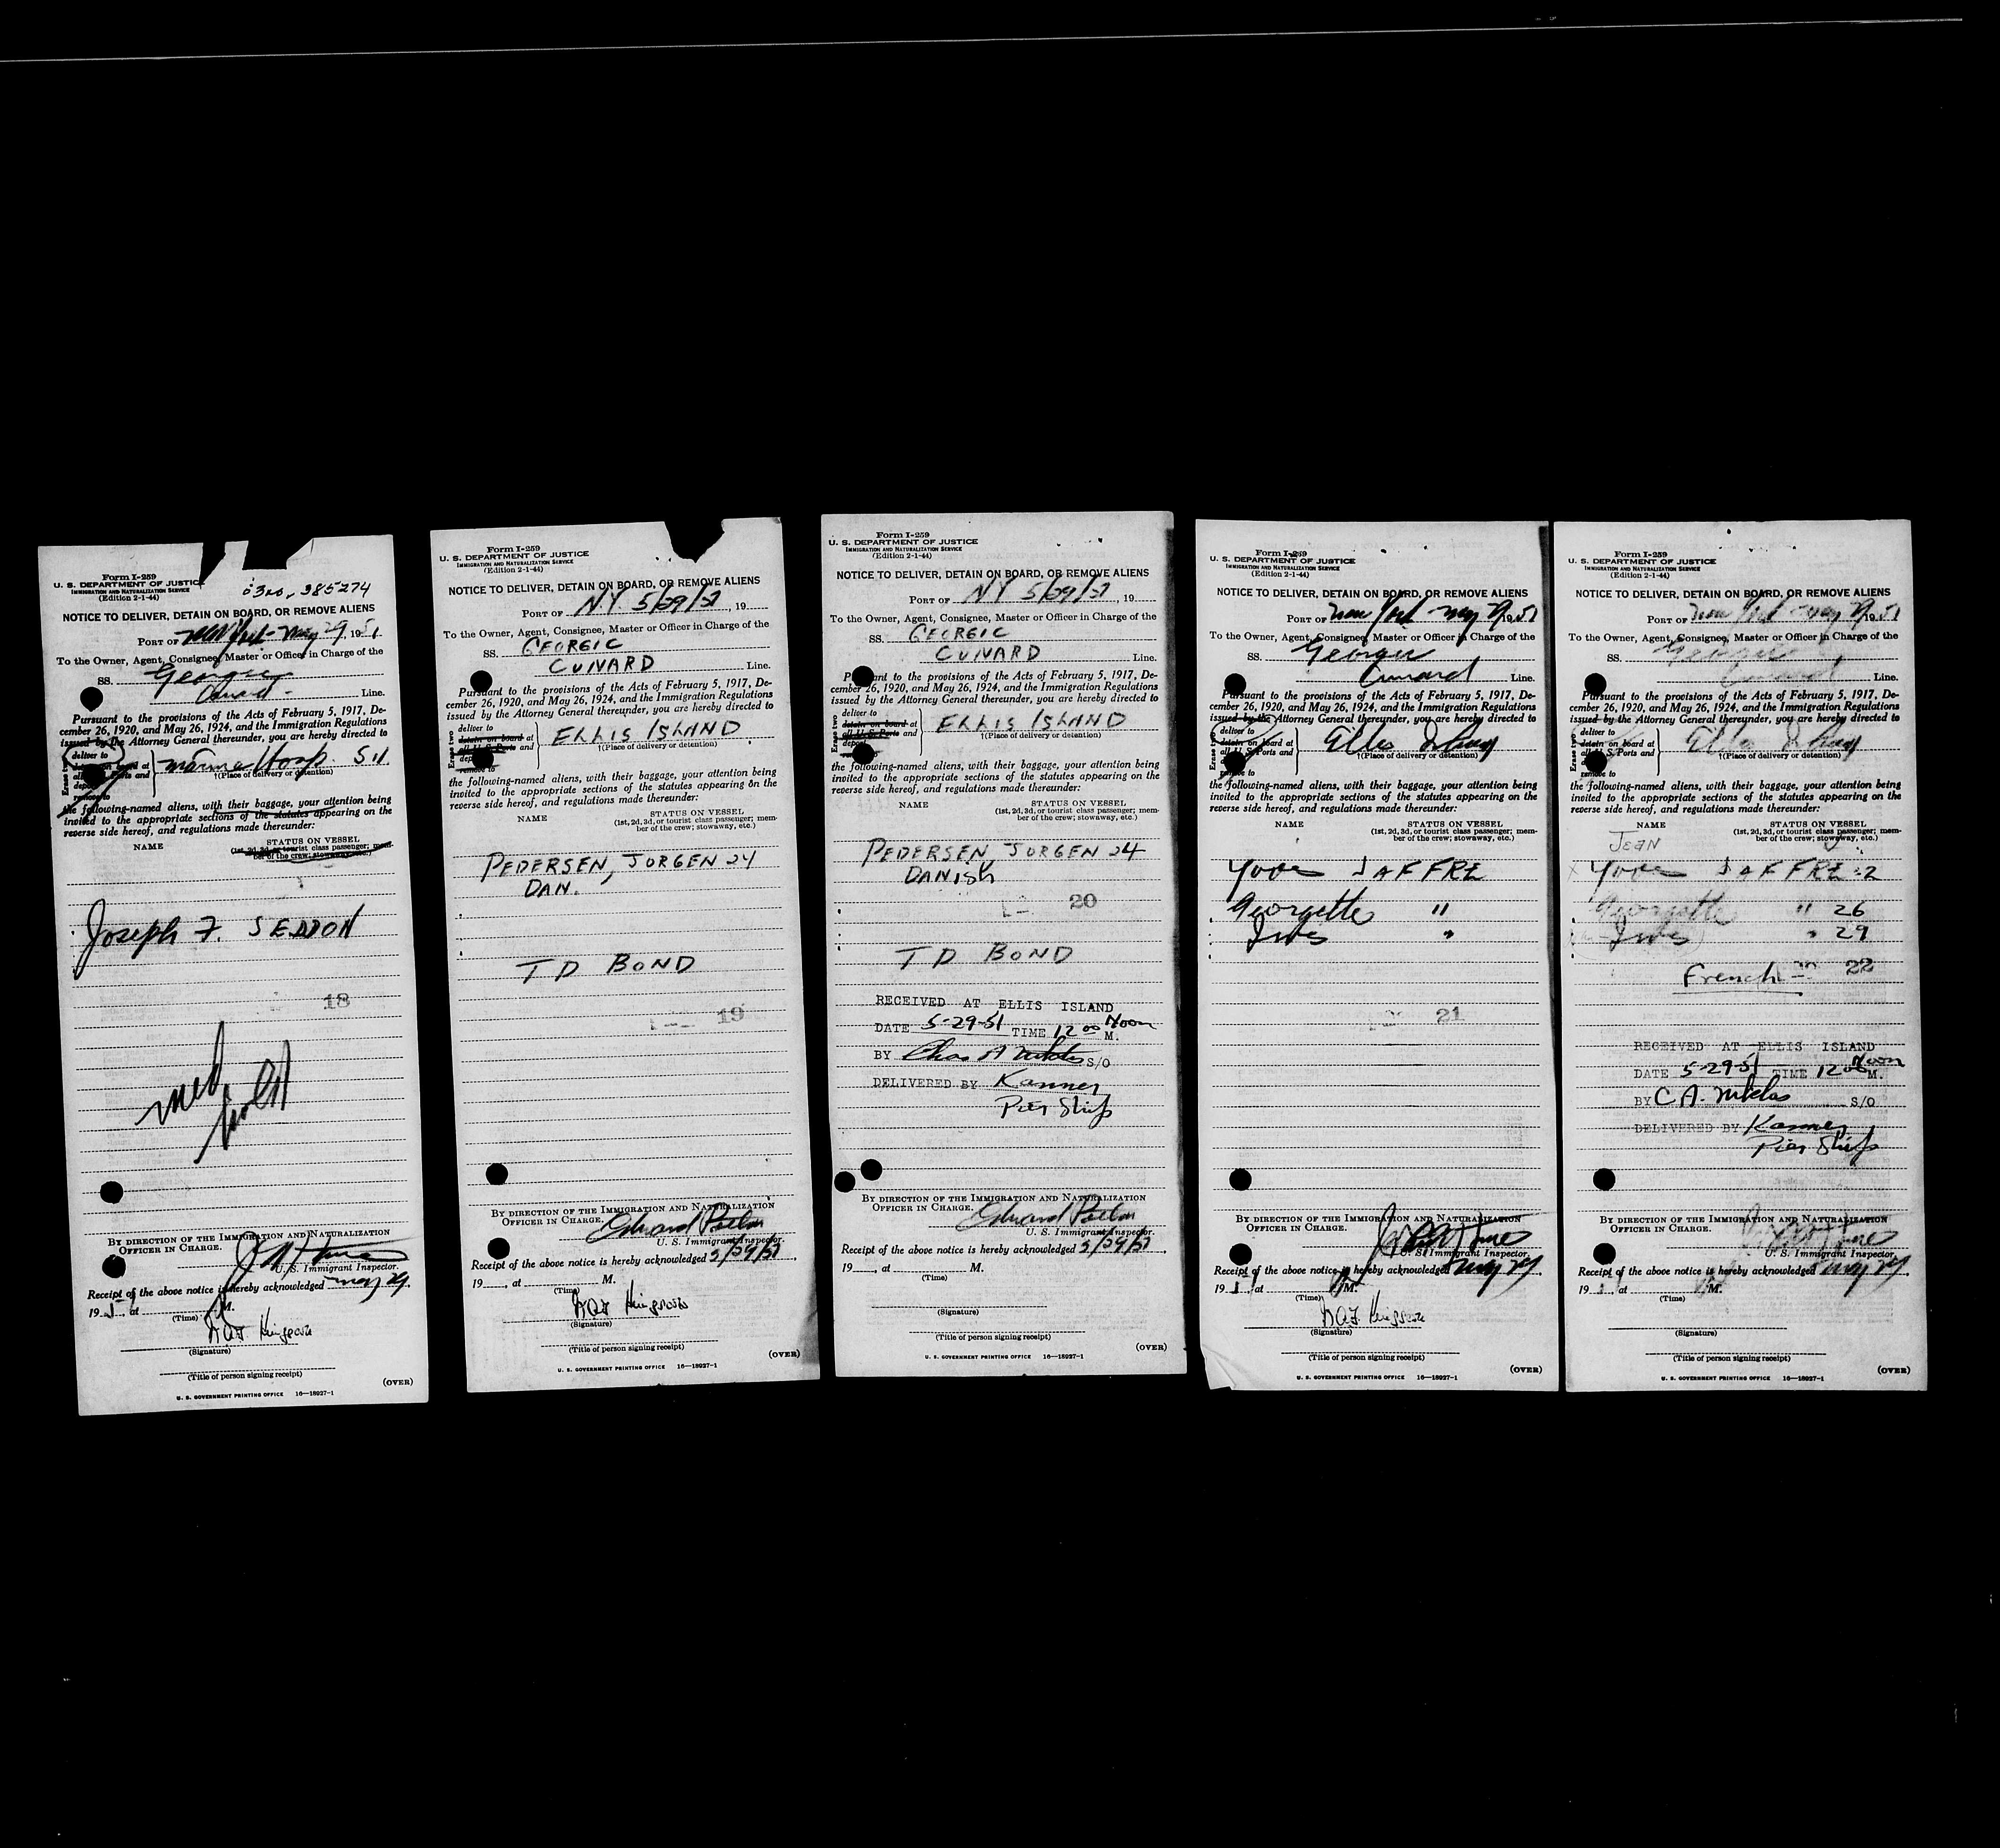 Form I-259
U. S. DEPARTMENT OF JUSTICE
IMMIGRATION AND NATURALIZATION SERVICE
(Edition 2-1-44)
NOTICE TO DELIVER, DETAIN ON BOARD, OR REMOVE ALIENS
PORT OF New York - May 29, 1951
To the Owner, Agent, Consignee, Master or Officer in Charge of the
SS. Georgic
Cunard Line.
Pursuant to the provisions of the Acts of February 5, 1917, De-
cember 26, 1920, and May 26, 1924, and the Immigration Regulations
issued by the Attorney General thereunder, you are hereby directed to
Erase two
deliver to
detain on board at
all U. S. Ports and
deport
remove to
Marine Hosp S.I.
†(Place of delivery or detention)
the following-named aliens, with their baggage, your attention being
invited to the appropriate sections of the statutes appearing on the
reverse side hereof, and regulations made thereunder:
NAME
STATUS ON VESSEL
(1st, 2d, 3d, or tourist class passenger; mem-
ber of the crew; stowaway, etc.)
Joseph F. SEDDON
18
med
BY DIRECTION OF THE IMMIGRATION AND NATURALIZATION
OFFICER IN CHARGE.
U. S. Immigrant Inspector.
Receipt of the above notice is hereby acknowledged May 29,
195 , at M.
(Time)
(Signature)
(Title of person signing receipt)
(OVER)
U. S. GOVERNMENT PRINTING OFFICE 16—18927-1
Form I-259
U. S. DEPARTMENT OF JUSTICE
IMMIGRATION AND NATURALIZATION SERVICE
(Edition 2-1-44)
NOTICE TO DELIVER, DETAIN ON BOARD, OR REMOVE ALIENS
PORT OF N.Y 5/29/51, 19
To the Owner, Agent, Consignee, Master or Officer in Charge of the
SS. GEORGIC
CUNARD Line.
Pursuant to the provisions of the Acts of February 5, 1917, De-
cember 26, 1920, and May 26, 1924, and the Immigration Regulations
issued by the Attorney General thereunder, you are hereby directed to
Erase two
deliver to
detain on board at
all U. S. Ports and
deport
remove to
ELLIS ISLAND
†(Place of delivery or detention)
the following-named aliens, with their baggage, your attention being
invited to the appropriate sections of the statutes appearing on the
reverse side hereof, and regulations made thereunder:
NAME
STATUS ON VESSEL
(1st, 2d, 3d, or tourist class passenger; mem-
ber of the crew; stowaway, etc.)
PEDERSEN, JORGEN 24
DAN.
TD BOND
19
BY DIRECTION OF THE IMMIGRATION AND NATURALIZATION
OFFICER IN CHARGE.
U. S. Immigrant Inspector.
Receipt of the above notice is hereby acknowledged 5/29/51
19 , at M.
(Time)
(Signature)
(Title of person signing receipt)
(OVER)
U. S. GOVERNMENT PRINTING OFFICE 16—18927-1
Form I-259
U. S. DEPARTMENT OF JUSTICE
IMMIGRATION AND NATURALIZATION SERVICE
(Edition 2-1-44)
NOTICE TO DELIVER, DETAIN ON BOARD, OR REMOVE ALIENS
PORT OF NY 5/29/51, 19
To the Owner, Agent, Consignee, Master or Officer in Charge of the
SS. GEORGIC
CUNARD Line.
Pursuant to the provisions of the Acts of February 5, 1917, De-
cember 26, 1920, and May 26, 1924, and the Immigration Regulations
issued by the Attorney General thereunder, you are hereby directed to
Erase two
deliver to
detain on board at
all U. S. Ports and
deport
remove to
ELLIS ISLAND
†(Place of delivery or detention)
the following-named aliens, with their baggage, your attention being
invited to the appropriate sections of the statutes appearing on the
reverse side hereof, and regulations made thereunder:
NAME
STATUS ON VESSEL
(1st, 2d, 3d, or tourist class passenger; mem-
ber of the crew; stowaway, etc.)
PEDERSEN JORGEN 24
DANISH
20
TD BOND
RECEIVED AT ELLIS ISLAND
DATE 5-29-51 TIME 12 00 Noon M.
BY Chas A Niklas S/O
DELIVERED BY Kanner
Pier
BY DIRECTION OF THE IMMIGRATION AND NATURALIZATION
OFFICER IN CHARGE.
U. S. Immigrant Inspector.
Receipt of the above notice is hereby acknowledged 5/29/51
19 , at M.
(Time)
(Signature)
(Title of person signing receipt)
(OVER)
U. S. GOVERNMENT PRINTING OFFICE 16—18927-1
Form I-259
U. S. DEPARTMENT OF JUSTICE
IMMIGRATION AND NATURALIZATION SERVICE
(Edition 2-1-44)
NOTICE TO DELIVER, DETAIN ON BOARD, OR REMOVE ALIENS
PORT OF New York - May 29, 1951
To the Owner, Agent, Consignee, Master or Officer in Charge of the
SS. Georgic
Cunard Line.
Pursuant to the provisions of the Acts of February 5, 1917, De-
cember 26, 1920, and May 26, 1924, and the Immigration Regulations
issued by the Attorney General thereunder, you are hereby directed to
Erase two
deliver to
detain on board at
all U. S. Ports and
deport
remove to
Ellis Island
†(Place of delivery or detention)
the following-named aliens, with their baggage, your attention being
invited to the appropriate sections of the statutes appearing on the
reverse side hereof, and regulations made thereunder:
NAME
STATUS ON VESSEL
(1st, 2d, 3d, or tourist class passenger; mem-
ber of the crew; stowaway, etc.)
Yves JAFFRE
Georgette "
"
21
BY DIRECTION OF THE IMMIGRATION AND NATURALIZATION
OFFICER IN CHARGE.
U. S. Immigrant Inspector.
Receipt of the above notice is hereby acknowledged May 29
19 , at M.
(Time)
(Signature)
(Title of person signing receipt)
(OVER)
U. S. GOVERNMENT PRINTING OFFICE 16—18927-1
Form I-259
U. S. DEPARTMENT OF JUSTICE
IMMIGRATION AND NATURALIZATION SERVICE
(Edition 2-1-44)
NOTICE TO DELIVER, DETAIN ON BOARD, OR REMOVE ALIENS
PORT OF New York - May 29, 1951
To the Owner, Agent, Consignee, Master or Officer in Charge of the
SS. Georgic
Cunard Line.
Pursuant to the provisions of the Acts of February 5, 1917, De-
cember 26, 1920, and May 26, 1924, and the Immigration Regulations
issued by the Attorney General thereunder, you are hereby directed to
Erase two
deliver to
detain on board at
all U. S. Ports and
deport
remove to
Ellis Island
†(Place of delivery or detention)
the following-named aliens, with their baggage, your attention being
invited to the appropriate sections of the statutes appearing on the
reverse side hereof, and regulations made thereunder:
NAME
STATUS ON VESSEL
(1st, 2d, 3d, or tourist class passenger; mem-
ber of the crew; stowaway, etc.)
JEAN
Yves JAFFRE
Georgette " 26
" 29
French 22
RECEIVED AT ELLIS ISLAND
DATE 5-29-51 TIME 12 00 Noon M.
BY C A. Niklas S/O
DELIVERED BY Kanner
Pier
BY DIRECTION OF THE IMMIGRATION AND NATURALIZATION
OFFICER IN CHARGE.
U. S. Immigrant Inspector.
Receipt of the above notice is hereby acknowledged May 29
19 , at M.
(Time)
(Signature)
(Title of person signing receipt)
(OVER)
U. S. GOVERNMENT PRINTING OFFICE 16—18927-1